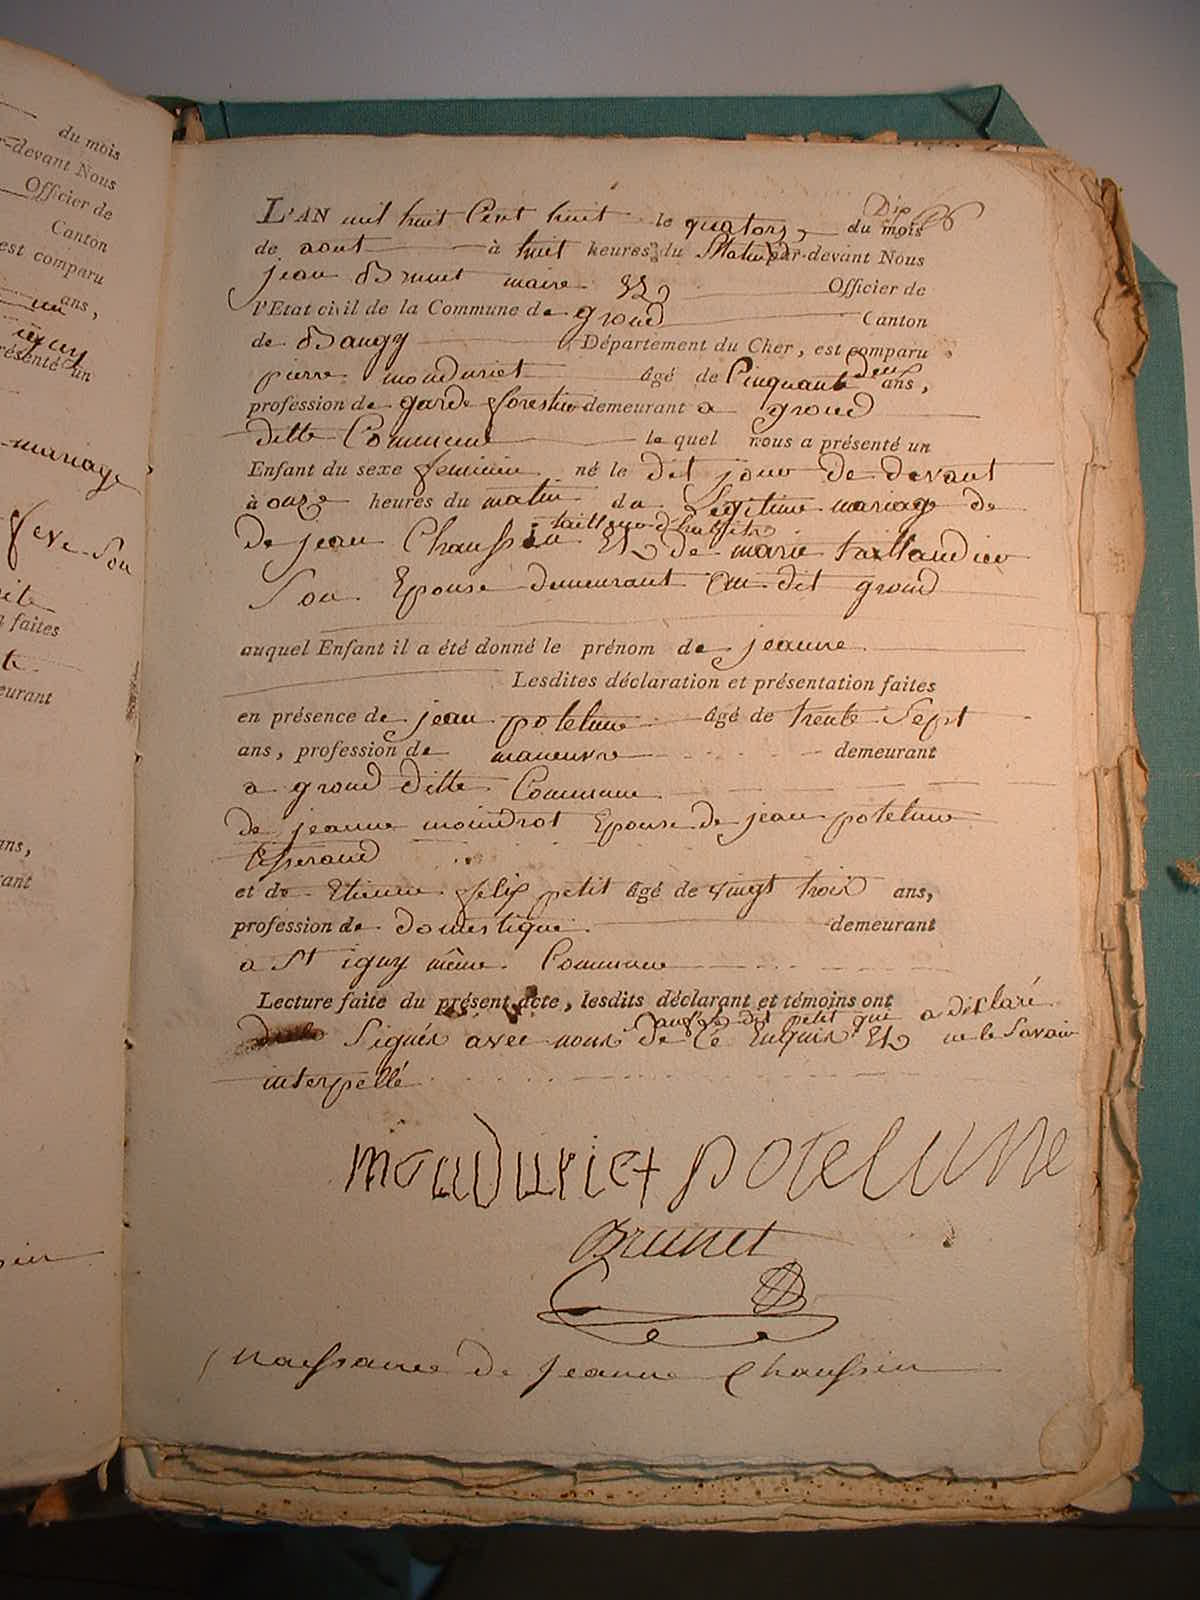 du mois
r-devant Nous
Officier de
Canton
est comparu
ans,
un
igny
résenté un
mariage
feve Son
n faites
eurant
ans,
rant
L'AN mil huit Cent huit le quatorze du mois
de aout à huit heures du Matin par-devant Nous
jean Brunet maire et Officier de
l'Etat civil de la Commune de groud Canton
de Baugy Département du Cher, est comparu
pierre monduriet âgé de Cinquante deux ans,
profession de garde forestier demeurant a groud
ditte Commune le quel nous a présenté un
Enfant du sexe feminin né le dit jour de devant
à onze heures du matin du Legitime mariage de
tailleur d'habits
de jean Chaussin Et de marie taillandier
Son Epouse demeurant au dit groud
auquel Enfant il a été donné le prénom de jeanne
Lesdites déclaration et présentation faites
en présence de jean potelune âgé de trente Sept
ans, profession de maneuvre demeurant
a groud ditte Commune
de jeanne moindrot Epouse de jean potelune
tisserand
et de Etienne felix petit âgé de vingt trois ans,
profession de domestique demeurant
a St igny même Commune
Lecture faite du présent acte, lesdits déclarant et témoins ont
dit petit qui a déclaré
Signés avec nous de Ce Enquis Et ne le Savoir
interpellé
mouduriet potelune
Brunet
naissance de Jeanne Chaussin